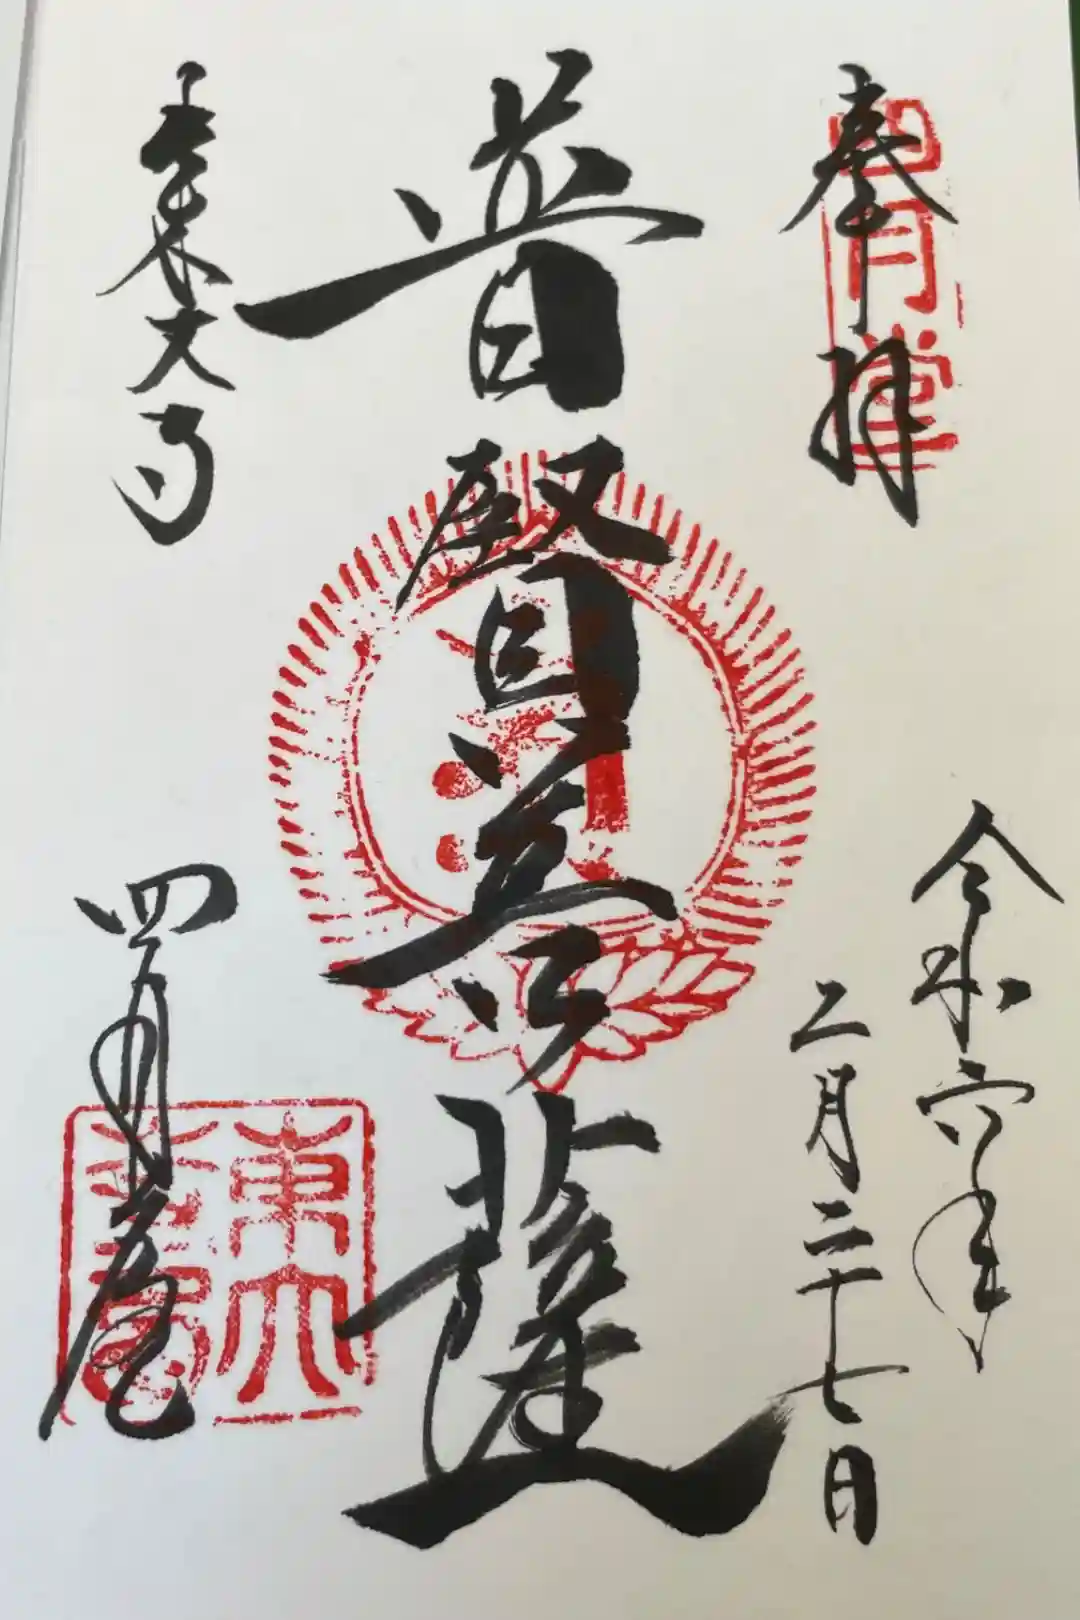 奉拝
四月堂
令和六年
二月二十七日
普賢菩薩
東大寺
四月堂
東大